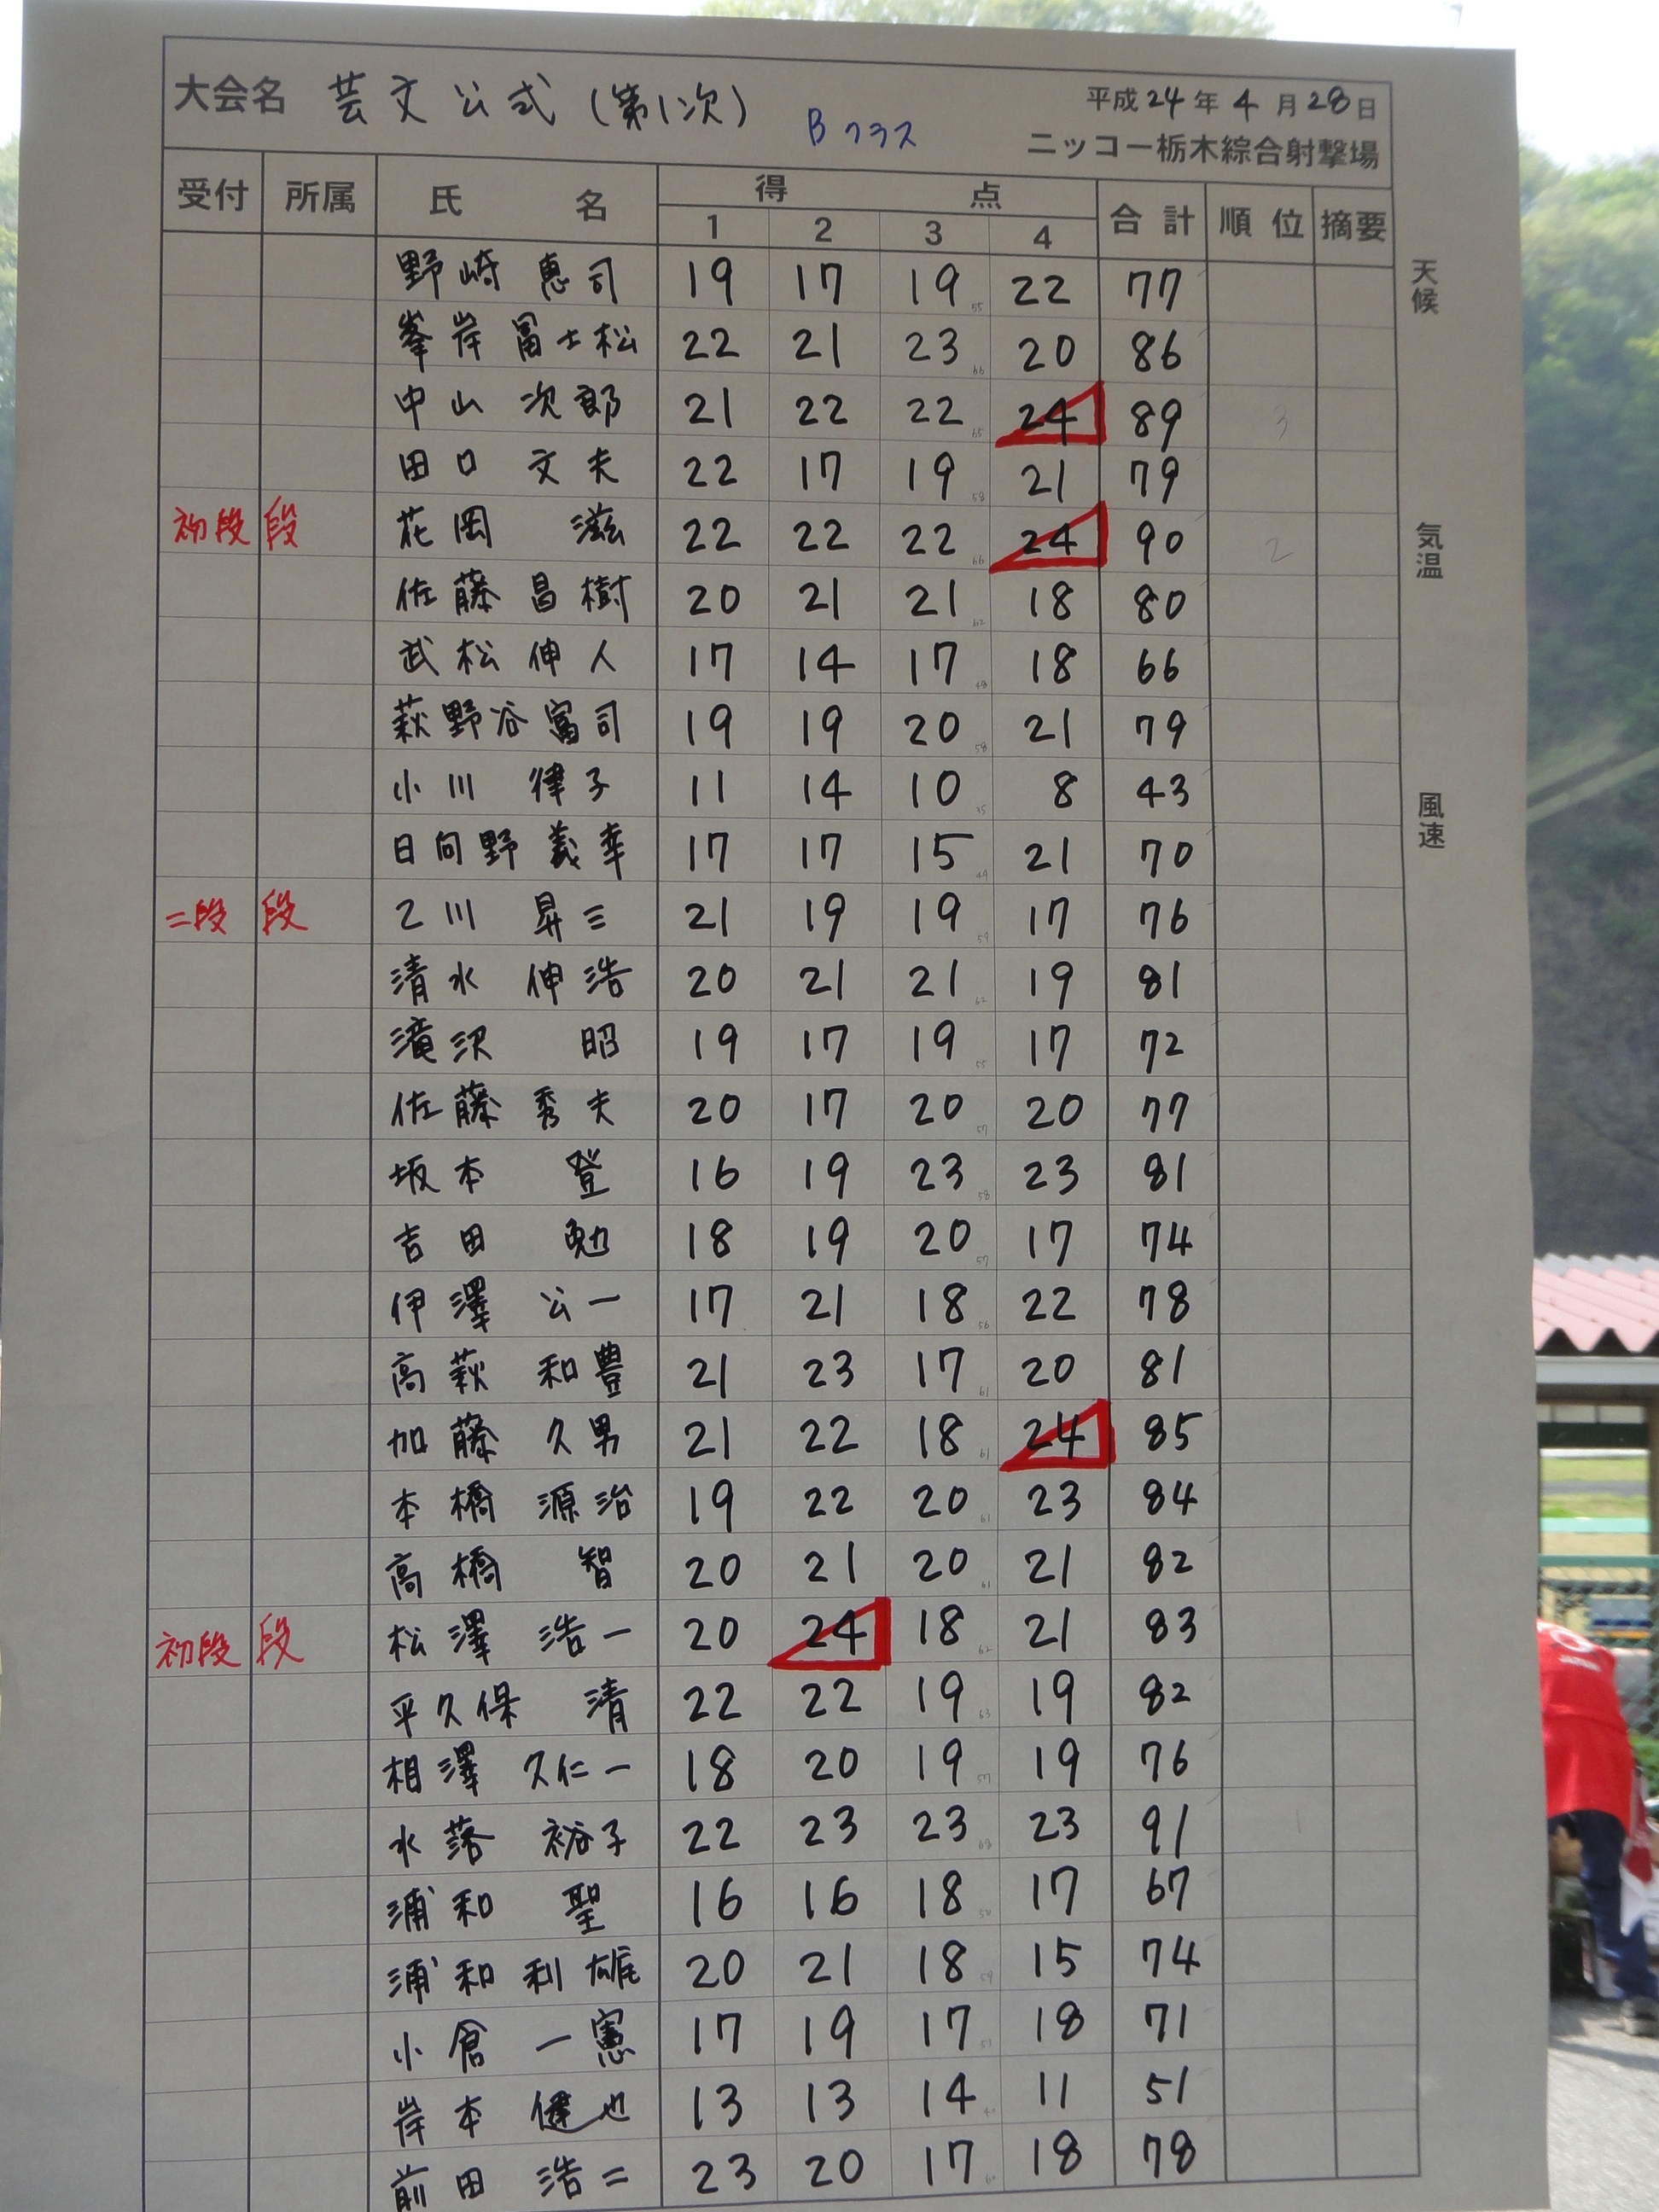 大会名 芸文公式(第1次) Bクラス 平成24年4月28日
ニッコー栃木綜合射撃場
受付 所属 氏名 得点 合計 順位 摘要
1 2 3 4
野崎 恵司 19 17 19 55 22 77
峯岸 冨士松 22 21 23 66 20 86
中山 次郎 21 22 22 65 24 89 3
田口 文夫 22 17 19 58 21 79
初段 段 花岡 滋 22 22 22 66 24 90 2
佐藤 昌樹 20 21 21 62 18 80
武松 伸人 17 14 17 48 18 66
萩野谷 富司 19 19 20 58 21 79
小川 律子 11 14 10 35 8 43
日向野 義幸 17 17 15 49 21 70
二段 段 乙川 昇三 21 19 19 59 17 76
清水 伸浩 20 21 21 62 19 81
滝沢 昭 19 17 19 55 17 72
佐藤 秀夫 20 17 20 57 20 77
坂本 登 16 19 23 58 23 81
吉田 勉 18 19 20 57 17 74
伊澤 公一 17 21 18 56 22 78
高萩 和豊 21 23 17 61 20 81
加藤 久男 21 22 18 61 24 85
本橋 源治 19 22 20 61 23 84
高橋 智 20 21 20 61 21 82
初段 段 松澤 浩一 20 24 18 62 21 83
平久保 清 22 22 19 63 19 82
相澤 久仁一 18 20 19 57 19 76
水落 裕子 22 23 23 68 23 91 1
浦和 聖 16 16 18 50 17 67
浦和 利雄 20 21 18 59 15 74
小倉 一憲 17 19 17 53 18 71
岸本 健也 13 13 14 40 11 51
前田 浩二 23 20 17 60 18 78
天候
気温
風速